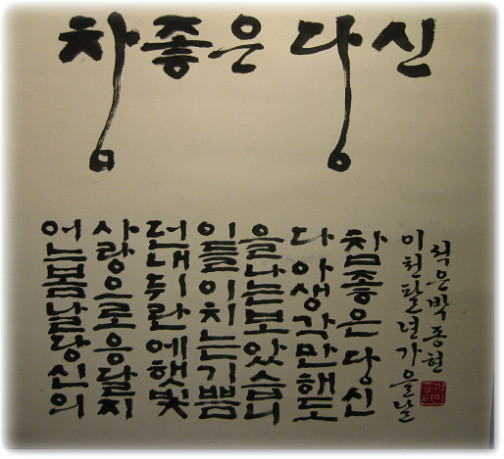 참좋은 당신
어느봄날당신의
사랑으로응달지
던내뒤란에햇빛
이들이치는기쁨
을나는보았습니
다 아 생각만해도
참좋은당신
이천팔년가을날
석은박종현